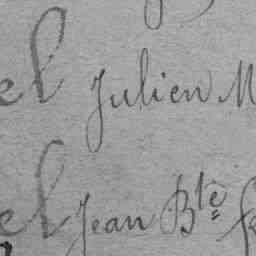 el Julien M
el Jean Bte